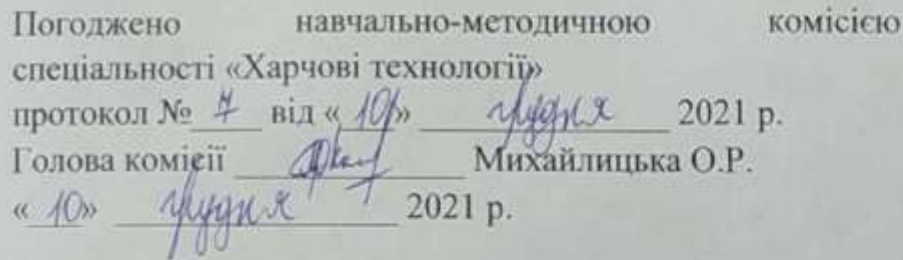 Погоджено навчально-методичною комісією
спеціальності «Харчові технології»
протокол № 7 від « 10» грудня 2021 р.
Голова комісії Михайлицька О.Р.
« 10» грудня 2021 р.